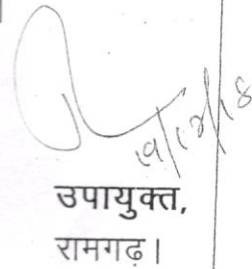 उपायुक्त,
रामगढ़।